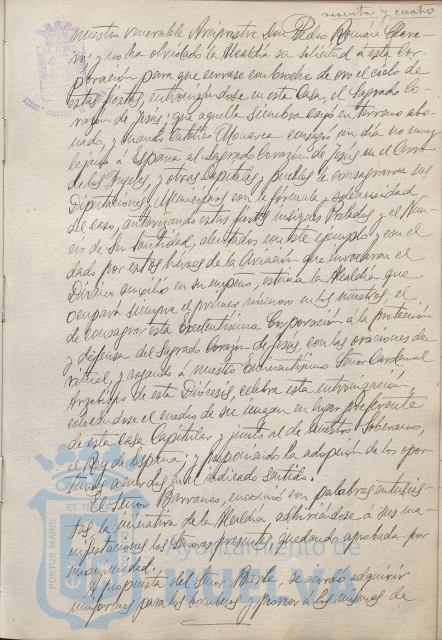 sesenta y cuatro
nuestro venerable Arcipreste Don Pedro Román Clavero
y no ha olvidado la Alcaldía su solicitud a esta Cor-
poración para que cerrase con broche de oro el ciclo de
estas fiestas, entronizándose en esta Casa, el Sagrado Co-
razón de Jesús; que aquella siembra cayó en terreno abo-
nado, y cuando Católico Monarca consagró un día no muy
lejano a España al Sagrado Corazón de Jesús en el Cerro
de los Ángeles, y otras Capitales y pueblos le consagraron sus
Diputaciones y Municipios con la fórmula y solemnidad
del caso, autorizando estas fiestas insignes Prelados y el Nun-
cio de Su Santidad, alentados con este ejemplo y con el
dado por estos héroes de la Aviación que invocaron el
Divino auxilio en su empeño, estima la Alcaldía que
ocupará siempre el primer número en los nuestros, el
de consagrar esta Excelentísima Corporación a la protección
y defensa del Sagrado Corazón de Jesús, con las oraciones del
ritual, y rogando a nuestro Eminentísimo Señor Cardenal
Arzobispo de esta Diócesis, celebre esta entronización,
colocándose el cuadro de su imagen en lugar preferente
de esta Casa Capitular y junto al de nuestro Soberano,
el Rey de España; y proponiendo la adopción de los opor-
tunos acuerdos en el indicado sentido.
El Señor Barranco, encomió con palabras entusias-
tas, la iniciativa de la Alcaldía, adhiriéndose a sus ma-
nifestaciones los Señores presentes, quedando aprobada por
unanimidad.
A propuesta del Señor se acordó adquirir
uniformes para los bomberos y proveer a los mismos de
PORTUS MARIS ET
Ayuntamiento de
HUELVA